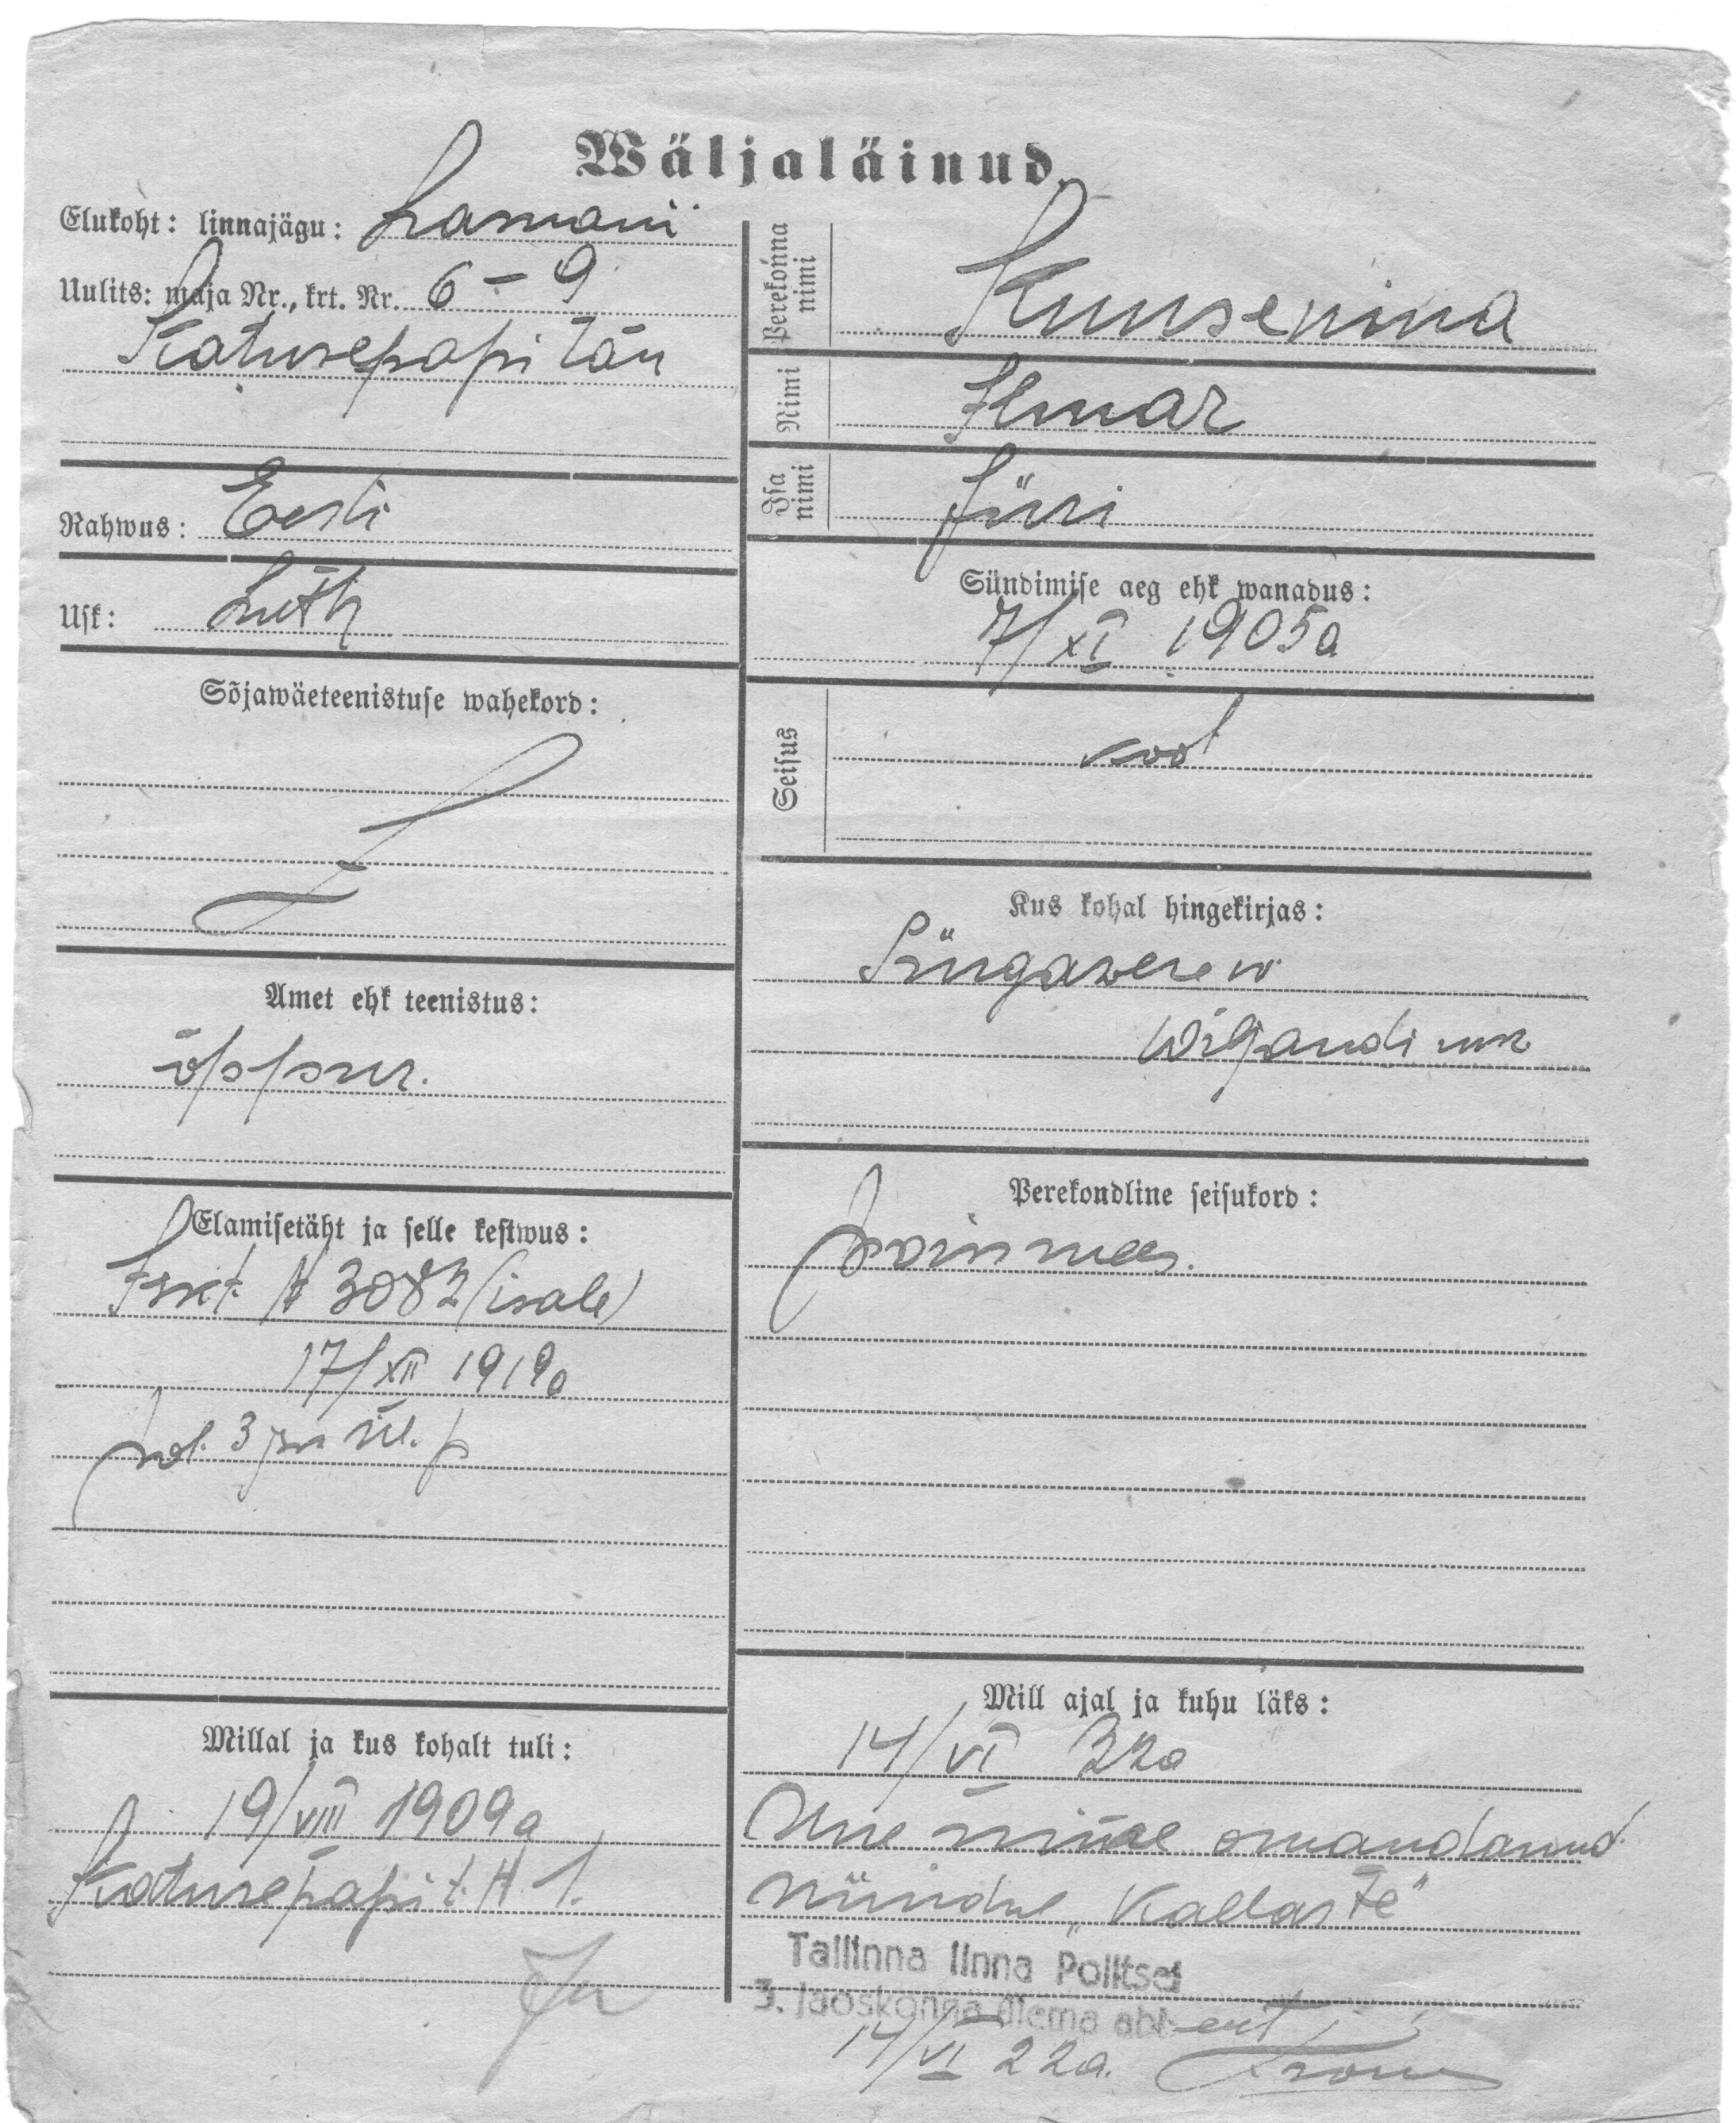 Wäljaläinud.
Elukoht: linnajägu: Lasnamäe
Uulits: maja Nr., krt. Nr. 6 – 9
Katusepapi tän
Rahwus: Eesti
Usk: Luth
Sõjawäeteenistuse wahekord:
Amet ehk teenistus:
õppur.
Elamisetäht ja selle kestwus:
№ 3082 (isale)
17/XII 1919a
pol. 3 jsk ül. p
Millal ja kus kohalt tuli:
19/VIII 1909a
Katusepapi t. № 1.
Perekonna nimi
Kuusenina
Nimi
Ilmar
Isa nimi
Jüri
Sündimise aeg ehk wanadus:
7/XI 1905a
Seisus
Kus kohal hingekirjas:
Süngawere w
Wiljandi mk
Perekondline seisukord:
poissmees.
Mill ajal ja kuhu läks:
14/VI 22a
Uue nime omandanud
nüüdne „Kallaste"
Tallinna linna Politsei
3. jaoskonna ülema abi
14/VI 22a.